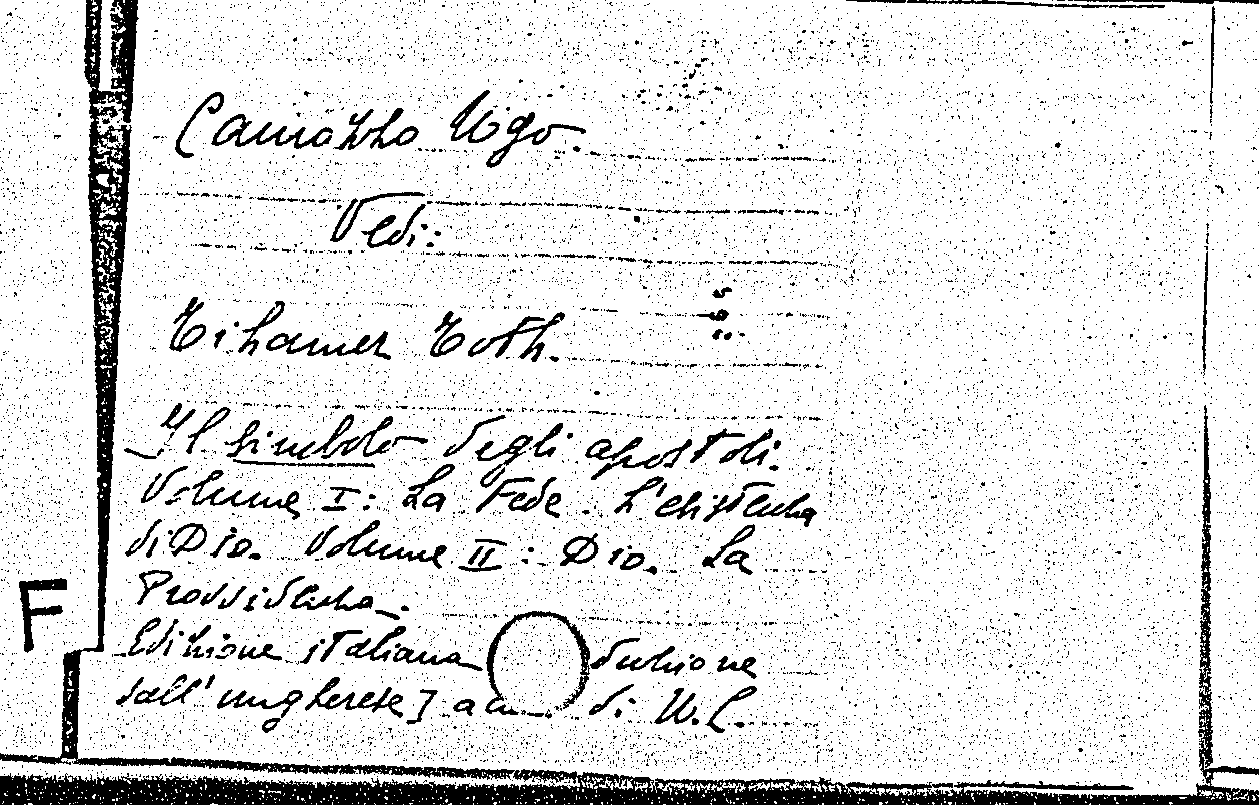 Camozzo Ugo.
Vedi:
Tihamer Toth.
Il simbolo degli apostoli.
Volume I: La Fede. L'esistenza
di Dio. Volume II: Dio. La
Provvidenza.
Edizione italiana duzione
dall'ungherese] a cu di U.C.
F